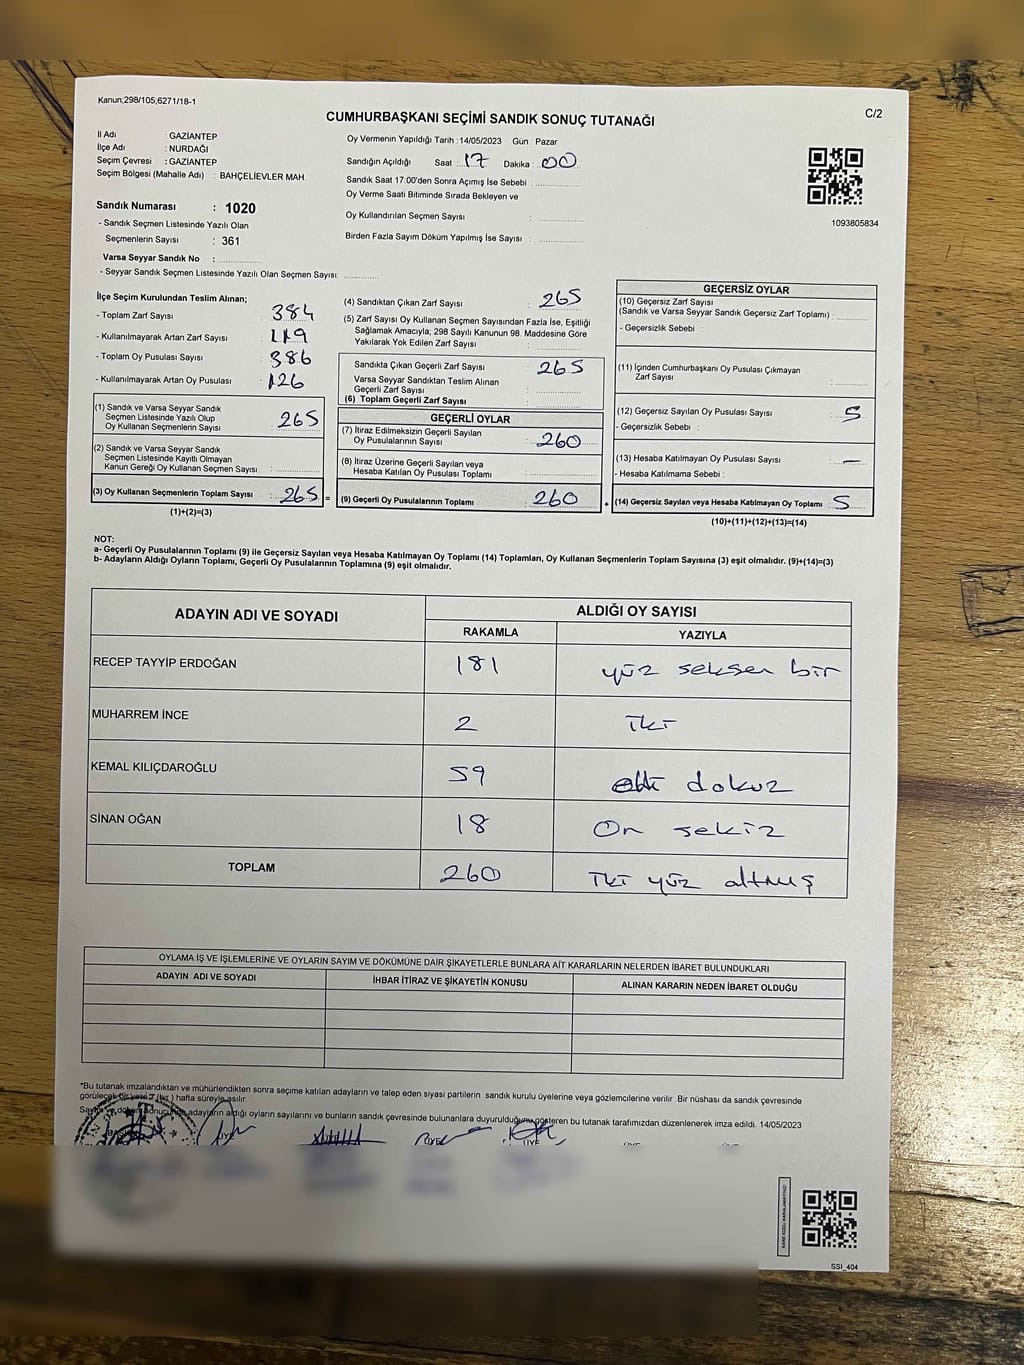 Kanun;298/105,6271/18-1
C/2
CUMHURBAŞKANI SEÇİMİ SANDIK SONUÇ TUTANAĞI
İl Adı : GAZİANTEP
İlçe Adı : NURDAĞI
Seçim Çevresi : GAZİANTEP
Seçim Bölgesi (Mahalle Adı) : BAHÇELİEVLER MAH.
Sandık Numarası : 1020
- Sandık Seçmen Listesinde Yazılı Olan
Seçmenlerin Sayısı : 361
Varsa Seyyar Sandık No :
- Seyyar Sandık Seçmen Listesinde Yazılı Olan Seçmen Sayısı:
Oy Vermenin Yapıldığı Tarih : 14/05/2023 Gün : Pazar
Sandığın Açıldığı Saat : 17 Dakika : 00
Sandık Saat 17:00'den Sonra Açımış İse Sebebi :
Oy Verme Saati Bitiminde Sırada Bekleyen ve
Oy Kullandırılan Seçmen Sayısı :
Birden Fazla Sayım Döküm Yapılmış İse Sayısı :
1093805834
İlçe Seçim Kurulundan Teslim Alınan;
- Toplam Zarf Sayısı : 384
- Kullanılmayarak Artan Zarf Sayısı : 119
- Toplam Oy Pusulası Sayısı : 386
- Kullanılmayarak Artan Oy Pusulası : 126
(1) Sandık ve Varsa Seyyar Sandık
Seçmen Listesinde Yazılı Olup
Oy Kullanan Seçmenlerin Sayısı : 265
(2) Sandık ve Varsa Seyyar Sandık
Seçmen Listesinde Kayıtlı Olmayan
Kanun Gereği Oy Kullanan Seçmen Sayısı :
(3) Oy Kullanan Seçmenlerin Toplam Sayısı : 265 =
(1)+(2)=(3)
(4) Sandıktan Çıkan Zarf Sayısı : 265
(5) Zarf Sayısı Oy Kullanan Seçmen Sayısından Fazla İse, Eşitliği
Sağlamak Amacıyla; 298 Sayılı Kanunun 98. Maddesine Göre
Yakılarak Yok Edilen Zarf Sayısı :
Sandıkta Çıkan Geçerli Zarf Sayısı : 265
Varsa Seyyar Sandıktan Teslim Alınan
Geçerli Zarf Sayısı :
(6) Toplam Geçerli Zarf Sayısı :
GEÇERLİ OYLAR
(7) İtiraz Edilmeksizin Geçerli Sayılan
Oy Pusulalarının Sayısı : 260
(8) İtiraz Üzerine Geçerli Sayılan veya
Hesaba Katılan Oy Pusulası Toplamı :
(9) Geçerli Oy Pusulalarının Toplamı : 260 +
GEÇERSİZ OYLAR
(10) Geçersiz Zarf Sayısı
(Sandık ve Varsa Seyyar Sandık Geçersiz Zarf Toplamı) :
- Geçersizlik Sebebi :
(11) İçinden Cumhurbaşkanı Oy Pusulası Çıkmayan
Zarf Sayısı :
(12) Geçersiz Sayılan Oy Pusulası Sayısı : 5
- Geçersizlik Sebebi :
(13) Hesaba Katılmayan Oy Pusulası Sayısı : —
- Hesaba Katılmama Sebebi :
(14) Geçersiz Sayılan veya Hesaba Katılmayan Oy Toplamı : 5
(10)+(11)+(12)+(13)=(14)
NOT:
a- Geçerli Oy Pusulalarının Toplamı (9) ile Geçersiz Sayılan veya Hesaba Katılmayan Oy Toplamı (14) Toplamları, Oy Kullanan Seçmenlerin Toplam Sayısına (3) eşit olmalıdır. (9)+(14)=(3)
b- Adayların Aldığı Oyların Toplamı, Geçerli Oy Pusulalarının Toplamına (9) eşit olmalıdır.
ADAYIN ADI VE SOYADI ALDIĞI OY SAYISI
RAKAMLA YAZIYLA
RECEP TAYYİP ERDOĞAN 181 yüz seksen bir
MUHARREM İNCE 2 İki
KEMAL KILIÇDAROĞLU 59 dokuz
SİNAN OĞAN 18 On sekiz
TOPLAM 260 İki yüz altmış
OYLAMA İŞ VE İŞLEMLERİNE VE OYLARIN SAYIM VE DÖKÜMÜNE DAİR ŞİKAYETLERLE BUNLARA AİT KARARLARIN NELERDEN İBARET BULUNDUKLARI
ADAYIN ADI VE SOYADI İHBAR İTİRAZ VE ŞİKAYETİN KONUSU ALINAN KARARIN NEDEN İBARET OLDUĞU
*Bu tutanak imzalandıktan ve mühürlendikten sonra seçime katılan adayların ve talep eden siyasi partilerin sandık kurulu üyelerine veya gözlemcilerine verilir Bir nüshası da sandık çevresinde
görülecek bir yere (bir) hafta süreyle asılır.
adayların aldığı oyların sayılarını ve bunların sandık çevresinde bulunanlara duyurulduğunu gösteren bu tutanak tarafımızdan düzenlenerek imza edildi. 14/05/2023
ÜYE ÜYE ÜYE
SSI_404